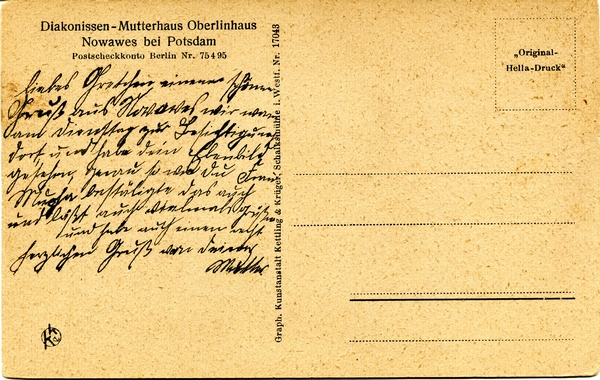 Diakonissen-Mutterhaus Oberlinhaus
Nowawes bei Potsdam
Postscheckkonto Berlin Nr. 75495
Liebes Gretchen einen schönen
Gruß aus Nowawes wir waren
am Dienstag zur Besichtigung
dort, und habe dein Ebenbild
gesehen, genau so wie du Frau
bestätigte das auch
und läßt auch vielmals grüßen
und habe auch einen recht
herzlichen Gruß von deiner
Mutter
Graph. Kunstanstalt Kettling & Krüger, Schalksmühle i. Westf. Nr. 17043
„Original-
Hella-Druck“